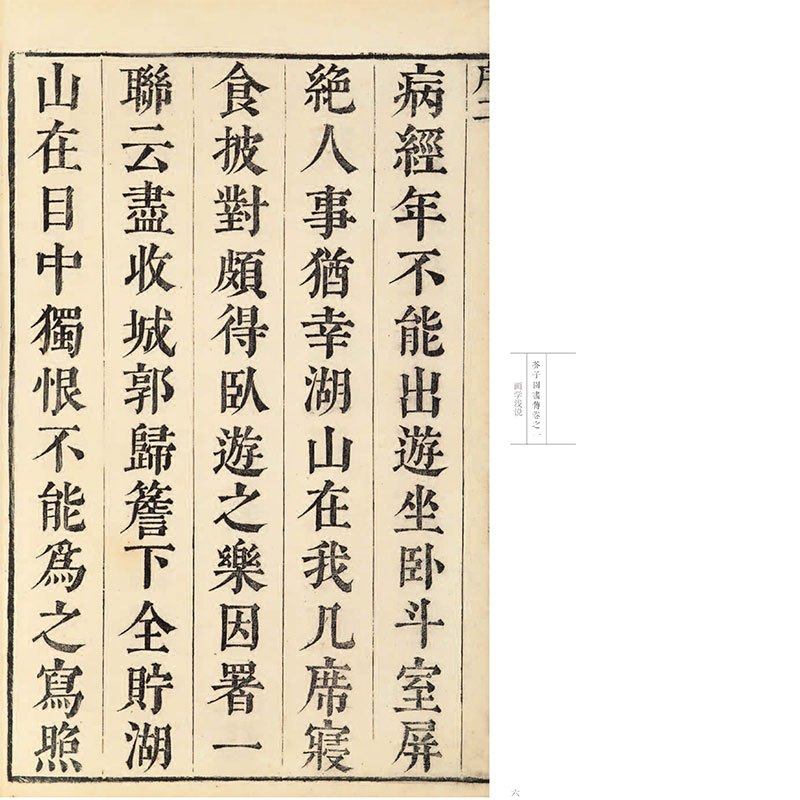 序二
病經年不能出遊坐卧斗室屏
絶人事猶幸湖山在我几席寢
食披對頗得卧遊之樂因署一
聯云盡收城郭歸簷下全貯湖
山在目中獨恨不能爲之寫照
芥子園畫傳卷之一
画学浅说
六